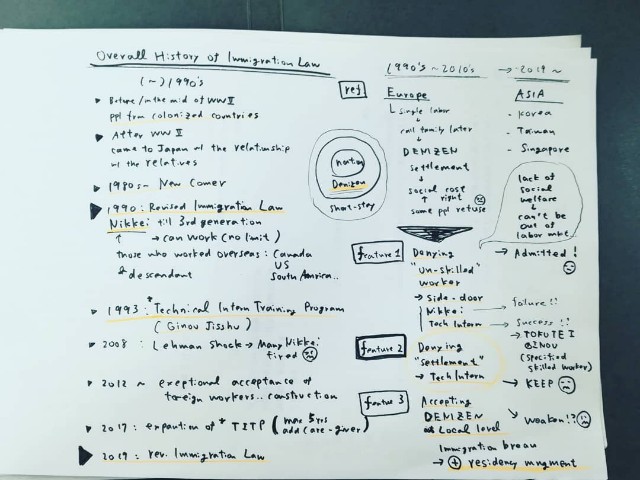 Overall History of Immigration Law
(~) 1990's
Before/in the mid of WWII
ppl from colonized countries
After WWII
came to Japan w/ the relationship
w/ the relatives
1980s- New Comer
1990: Revised Immigration Law
Nikkei til 3rd generation
↑ → can work (no limit)
those who worked overseas: Canada
US
& descendant South America..
1993: *Technical Intern Training Program
(Ginou Jisshu)
2008: Lehman Shock → Many Nikkei
fired
2012 ~ exeptional acceptance of
foreign workers.. construction
2017: expantion of *TITP (max 5 yrs
add care-giver)
2019: rev. Immigration Law
ref
nation
Denizen
short-stay
1990's ~ 2010's → 2019 ~
Europe
single labor
↓
call family later
↓
DENIZEN
settlement
↓
social cost
↑ right
some ppl refuse
ASIA
- Korea
- Taiwan
- Singapore
lack of
social
welfare
↓
can't be
out of
labor mkt.
feature 1
Denying
"un-skilled"
worker
→ Side-door
Nikkei
Tech Intern
→ Admitted!
failure!!
success!!
→ TOKUTEI
GINOU
(specified
skilled worker)
feature 2
Denying
"settlement"
→ Tech Intern
→ KEEP
feature 3
Accepting
DENIZEN
at Local level
Weaken!?
Immigration bureau
→ + residency mngment